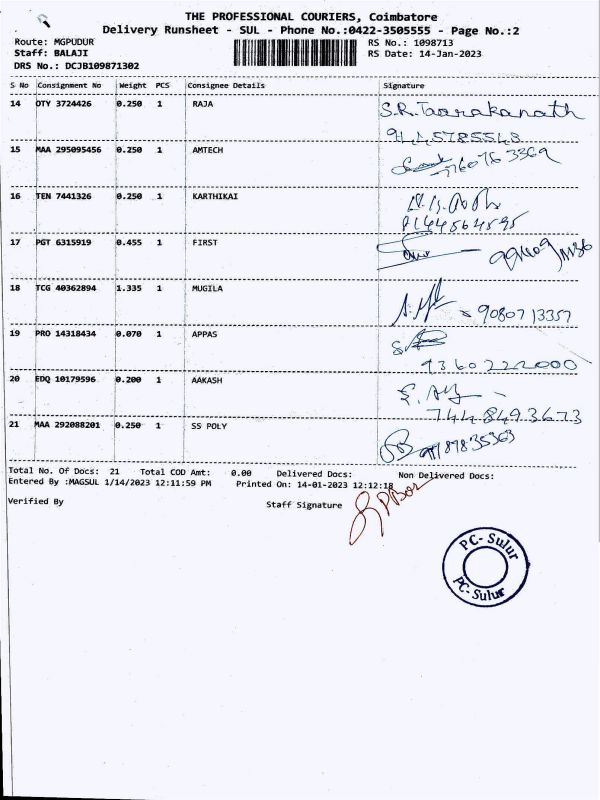 THE PROFESSIONAL COURIERS, Coimbatore
Delivery Runsheet - SUL - Phone No.:0422-3505555 - Page No.:2
Route: MGPUDUR RS No.: 1098713
Staff: BALAJI RS Date: 14-Jan-2023
DRS No.: DCJB109871302
S No Consignment No Weight PCS Consignee Details Signature
14 OTY 3724426 0.250 1 RAJA S.R.Taarakanath
15 MAA 295095456 0.250 1 AMTECH
16 TEN 7441326 0.250 1 KARTHIKAI
17 PGT 6315919 0.455 1 FIRST
18 TCG 40362894 1.335 1 MUGILA 9080713357
19 PRO 14318434 0.070 1 APPAS
9360222000
20 EDQ 10179596 0.200 1 AAKASH
7448493673
21 MAA 292088201 0.250 1 SS POLY
Total No. Of Docs: 21 Total COD Amt: 0.00 Delivered Docs: Non Delivered Docs:
Entered By :MAGSUL 1/14/2023 12:11:59 PM Printed On: 14-01-2023 12:12:18
Verified By Staff Signature
PC- Sulur
PC- Sulur